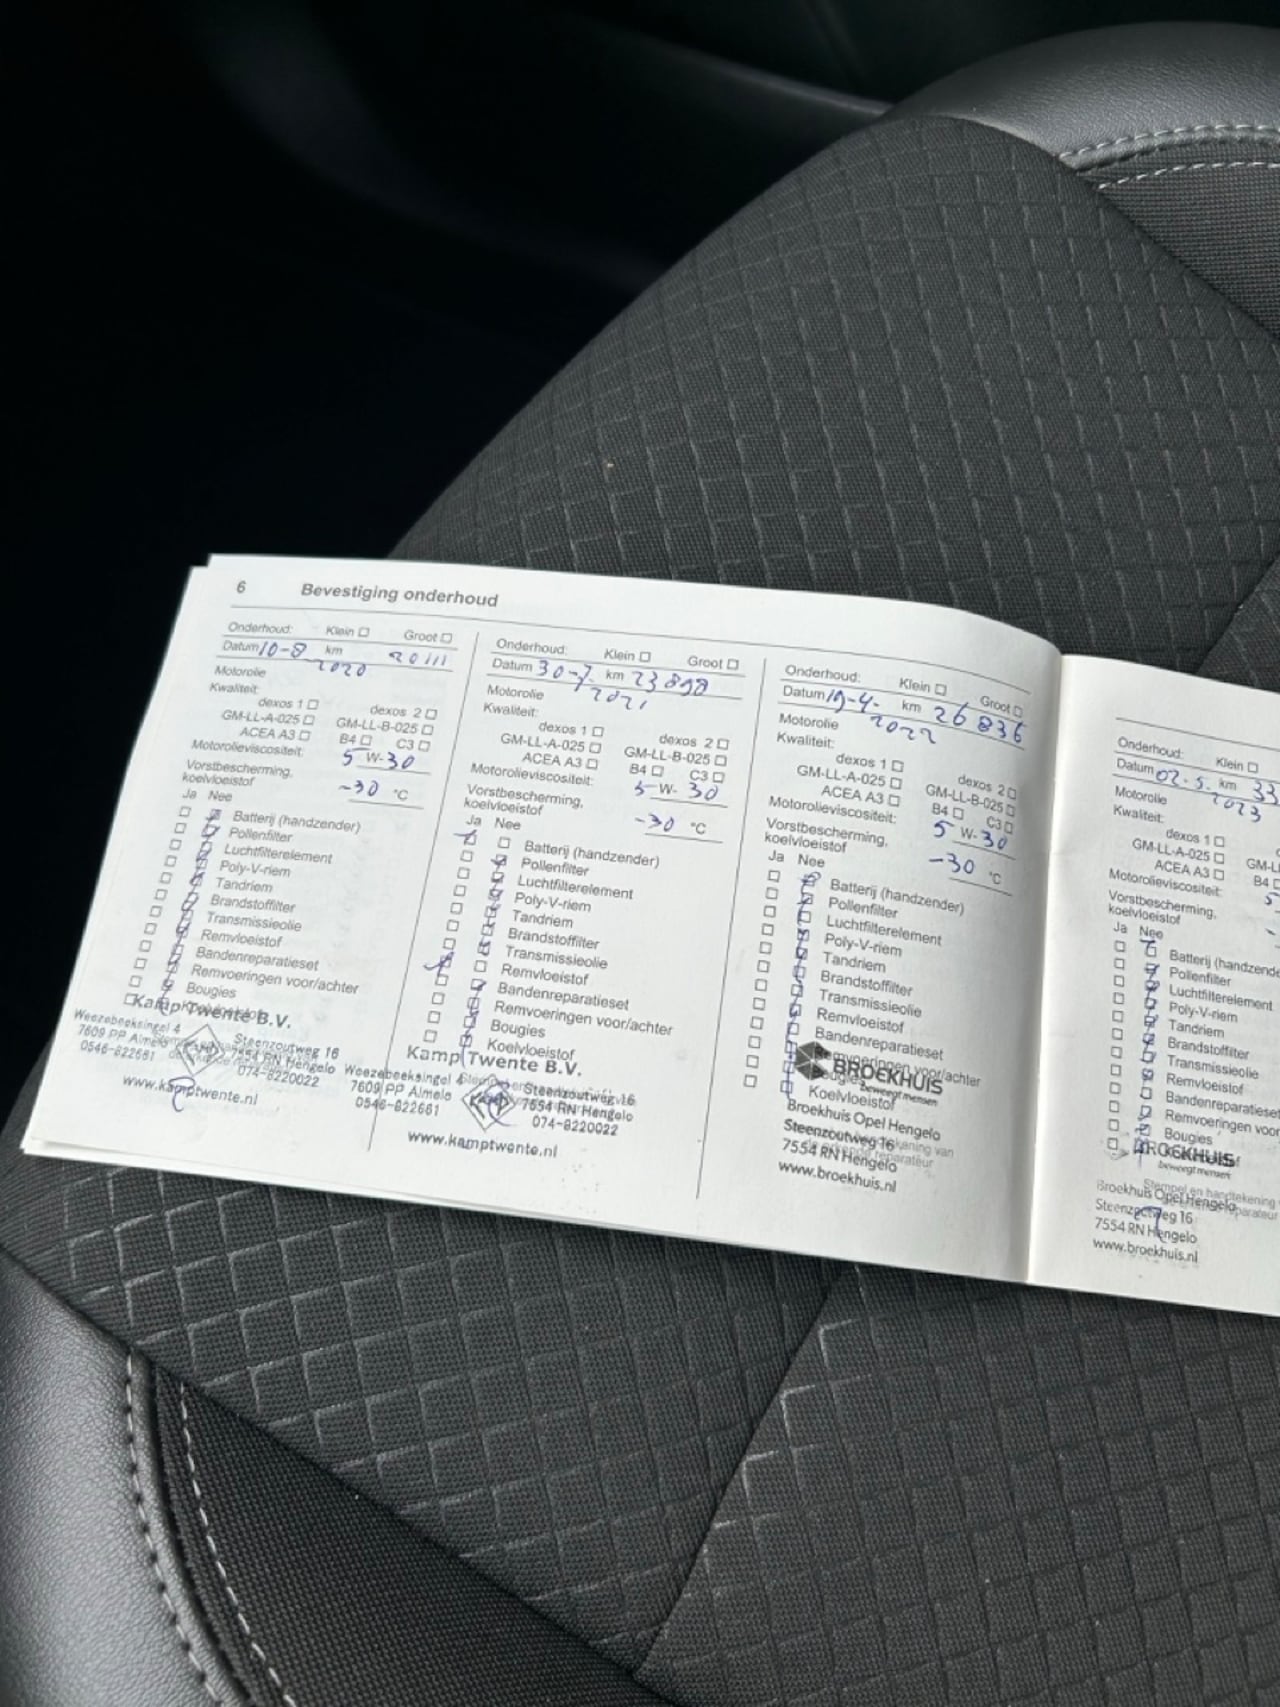 6 Bevestiging onderhoud
Onderhoud: Klein Groot
Datum 10-8 km 20111
2020
Motorolie
Kwaliteit:
dexos 1 dexos 2
GM-LL-A-025 GM-LL-B-025
ACEA A3 B4 C3
Motorolieviscositeit: 5 W-30
Vorstbescherming,
koelvloeistof -30 °C
Ja Nee
Batterij (handzender)
Pollenfilter
Luchtfilterelement
Poly-V-riem
Tandriem
Brandstoffilter
Transmissieolie
Remvloeistof
Bandenreparatieset
Remvoeringen voor/achter
Bougies
Kamp Twente B.V.
Weezebeeksingel 4 Steenzoutweg 16
7609 PP Almelo 7554 RN Hengelo
0546-822661 074-8220022
www.kamptwente.nl
Onderhoud: Klein Groot
Datum 30-7- km 23898
2021
Motorolie
Kwaliteit:
dexos 1 dexos 2
GM-LL-A-025 GM-LL-B-025
ACEA A3 B4 C3
Motorolieviscositeit: 5 W- 30
Vorstbescherming,
koelvloeistof -30 °C
Ja Nee
Batterij (handzender)
Pollenfilter
Luchtfilterelement
Poly-V-riem
Tandriem
Brandstoffilter
Transmissieolie
Remvloeistof
Bandenreparatieset
Remvoeringen voor/achter
Bougies
Koelvloeistof
Kamp Twente B.V.
Weezebeeksingel 4 Steenzoutweg 16
7609 PP Almelo 7554 RN Hengelo
0546-822661 074-8220022
www.kamptwente.nl
Onderhoud: Klein Groot
Datum 19-4- km 26836
2022
Motorolie
Kwaliteit:
dexos 1 dexos 2
GM-LL-A-025 GM-LL-B-025
ACEA A3 B4 C3
Motorolieviscositeit: 5 W-30
Vorstbescherming,
koelvloeistof -30 °C
Ja Nee
Batterij (handzender)
Pollenfilter
Luchtfilterelement
Poly-V-riem
Tandriem
Brandstoffilter
Transmissieolie
Remvloeistof
Bandenreparatieset
Remvoeringen voor/achter
Bougies
Koelvloeistof
BROEKHUIS
beweegt mensen
Broekhuis Opel Hengelo
Steenzoutweg 16
7554 RN Hengelo
www.broekhuis.nl
Onderhoud: Klein
Datum 02-5- km 33
2023
Motorolie
Kwaliteit:
dexos 1
GM-LL-A-025 GM-L
ACEA A3 B4
Motorolieviscositeit: 5
Vorstbescherming,
koelvloeistof
Ja Nee
Batterij (handzende
Pollenfilter
Luchtfilterelement
Poly-V-riem
Tandriem
Brandstoffilter
Transmissieolie
Remvloeistof
Bandenreparatieset
Remvoeringen voor
Bougies
BROEKHUIS
beweegt mensen
Stempel en handtekening
Broekhuis Opel Hengelo
Steenzoutweg 16
7554 RN Hengelo
www.broekhuis.nl